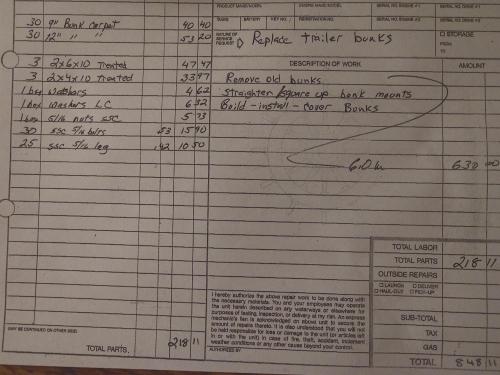 PRODUCT MAKE/MODEL
ENGINE MAKE/MODEL
SERIAL NO. ENGINE #1
SERIAL NO. ENGINE #1
TANKS BATTERY KEY NO. REGISTRATION NO.
SERIAL NO. ENGINE #2
SERIAL NO. ENGINE #2
30 9" Bunk carpet 40 40
30 12" " " 53 20
NATURE OF SERVICE REQUEST Replace trailer bunks
STORAGE
FROM
TO
DESCRIPTION OF WORK AMOUNT
3 2x6x10 Treated 47 47
3 2x4x10 Treated 33 97
1 box Washers 4 62
1 box Washers L.C 6 32
1 box 5/16 nuts SSC 5 93
30 SSC 5/16 .53 15 90
25 SSC 5/16 lag .42 10 50
Remove old bunks
straighten/square up bunk mounts
Build - install - cover Bunks
6.0 630 00
TOTAL LABOR
TOTAL PARTS 218 11
OUTSIDE REPAIRS
LAUNCH DELIVER
HAUL-OUT PICK-UP
SUB-TOTAL
TAX
GAS
TOTAL 848 11
I hereby authorize the above repair work to be done along with
the necessary materials. You and your employees may operate
the unit herein described on any waterways or elsewhere for
purposes of testing, inspection, or delivery at my risk. An express
mechanic's lien is acknowledged on above unit to secure the
amount of repairs thereto. It is also understood that you will not
be held responsible for loss or damage to the unit (or articles left
in or with the unit) in case of fire, theft, accident, inclement
weather conditions or any other cause beyond your control.
AUTHORIZED BY
(MAY BE CONTINUED ON OTHER SIDE)
TOTAL PARTS 218 11